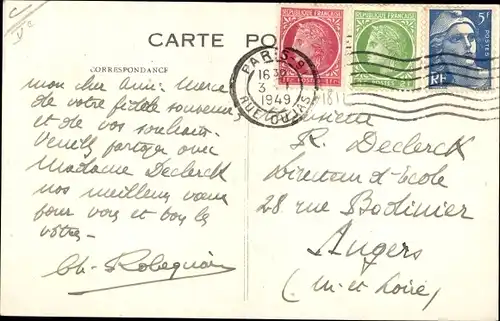 CARTE PO
CORRESPONDANCE
PARIS-9
16 30
3 - 1
1949
RUE
POSTES
5F
RF
Mon cher ami. Merci
de votre fidèle souvenir
et de vos souhaits.
Veuillez partager avec
Madame Declerck
nos meilleurs vœux
pour vous et tous les
vôtres.
Ch. Robequain
Monsieur
R. Declerck
Directeur d'École
28 rue Bodinier
Angers
(M. et Loire)